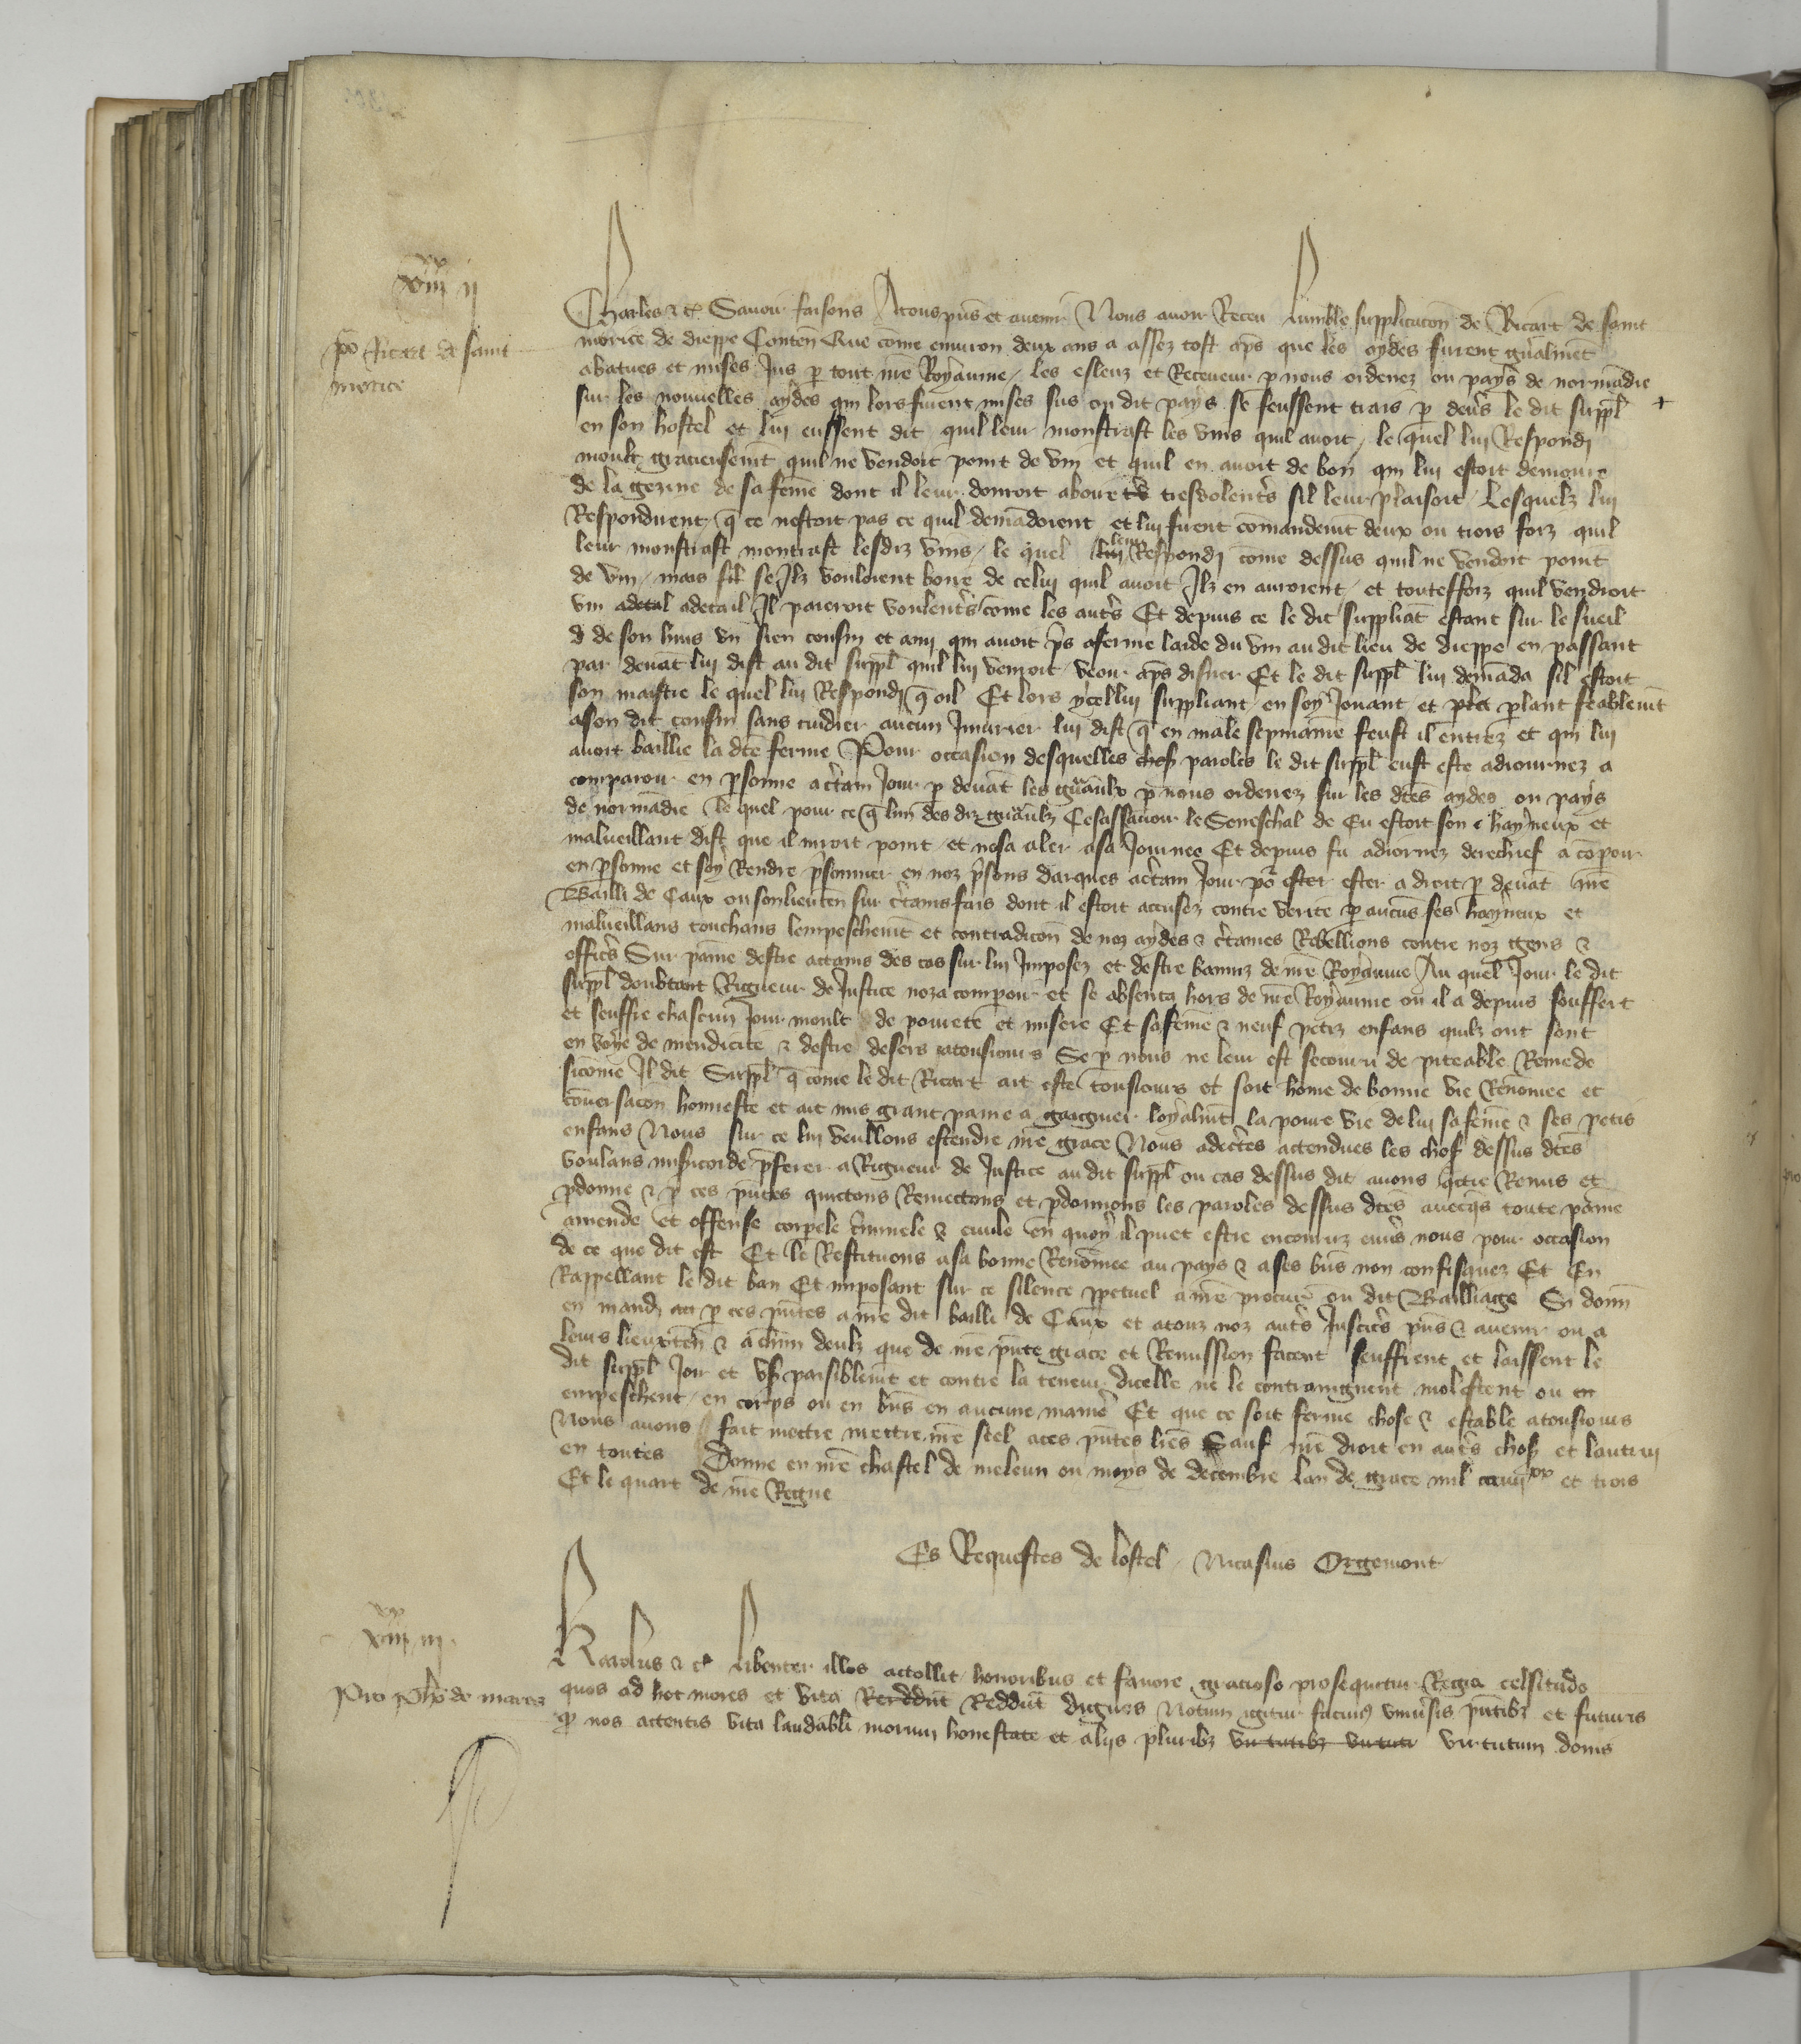 xx
viii ii
po Ricart de saint
morice
Charles & ce. Savoir faisons A tous pns et avenir Nous avoir Receu lumble supplicacon de Ricart de saint
morice de dieppe Conten Que come environ deux ans a assez tost aps que les aydes furent gnalment
abatues et mises Jus p tout nre Royaume, les esleuz et Receveur p nous ordenez ou pays de normadie
sur les nouvelles aydes qui lors furent mises sus ou dit pays se feussent trais p devs le dit suppl +
en son hostel et lui eussent dit quil leur monstrast les vins quil avoit, le quel lui Respondi
moult gracieusemt quil ne vendoit point de vin et quil en avoit de bon qui lui estoit demoure
de la gezine de sa feme dont il leur donroit a boire tresvolents sil leur plaisoit, Lesquelz lui
Respondirent q ce nestoit pas ce quil demadoient et lui firent comandemt deux ou trois foiz quil
leur monstrast montrast lesdiz vins, le quel lui leur Respondi come dessus quil ne vendoit point
de vin, mais sil se Ilz vouloient boire de celui quil avoit Ilz en auroient, et touteffoiz quil vendroit
vin adetal adetail Il paieroit voulents come les auts Et depuis ce le dit suppliat estant sur le sueil
d de son huis un sien cousin et ami qui avoit pris aferme laide du vin au dit lieu de dieppe en passant
par devat lui dist au dit suppl quil lui venroit veoir aps disner Et le dit suppl lui demada sil estoit
son maistre le quel lui Respondi q oil Et lors ycellui suppliant en soy Jouant et plet plant feablemt
ason dit cousin sans cuidier aucun Iniurier lui dist q en male sepmaine feust il entrez et qui lui
avoit baillie la dte ferme Pour occasion desquelles chos paroles le dit suppl eust este adiournez a
comparoir en psonne actain Jour p devat les gnaulx p nous ordenez sur les dtes aydes ou pays
de normadie le quel pour ce q lun des diz gnaulz Cestassavoir le Seneschal de Eu estoit son hayneux et
malveillant dist que il niroit point, et nosa aler asa Journee Et depuis fu adiornez derechief a copoir
en psonne et soy Rendre prisonnier en noz prisons darques actain Jour po ester ester a droit p devat nre
Bailli de Caux ou son lieuten sur ctains fais dont il estoit accusez contre verite p aucus ses hayneux et
malveillans touchans lempeschemt et contradicon de noz aydes & ctaines Rebellions contre noz gens &
offics Sur paine destre actains des cas sur lui Imposez et destre banniz de nre Royaume Au quel Jour le dit
suppl doubtant Rigueur de Justice noza compoir et se absenta hors de nre Royaume ou il a depuis souffert
et seuffre chascun Jour moult de povrete et misere Et sa feme & neuf petiz enfans quilz ont sont
en voye de mendicite & destre desers atousiours Se p nous ne leur est secouru de piteable Remede
sicome Il dit Suppl q come le dit Ricart ait este tousiours et soit home de bonne vie Renomee et
coversacon honneste et ait mis grant paine a gaigner loyalmt la povre vie de lui sa feme & ses petis
enfans Nous sur ce lui veullons estendre nre grace Nous adcertes attendues les chos dessus dtes
voulans misicorde pferer a Rigueur de Justice au dit suppl ou cas dessus dit avons qctie Remis et
pdonne & p ces pntes quictons Remectons et pdonnons les paroles dessus dtes avecqs toute paine
amende et offense corpele criminele & civile en quoy il puet estre encouruz envs nous pour occasion
de ce que dit est Et le Restituons asa bonne Renomee au pays & ases bns non confisquez Et En
Rappellant le dit ban Et imposant sur ce silence ppetuel a nre procur ou dit Bailliage Si donn
en mandt au p ces pntes a nre dit bailli de Caux et atouz noz auts Justics pns & avenir ou a
leurs lieuxten & a chun deulz que de nre pnte grace et Remission facent seuffrent et laissent le
dit suppl Joir et us paisiblemt et contre la teneur dicelle ne le contraingnent molestent ou en
empeschent, en corps ou en bns en aucune manie Et que ce soit ferme chose & estable atousiours
Nous avons fait mettre mettre nre seel aces pntes lres Sauf nre droit en auts chos et lautrui
en toutes Donne en nre chastel de meleun ou moys de decembre lan de grace mil ccc iiii xx et trois
Et le quart de nre Regne
Es Requestes de lostel, Nicasius Orgemont
xx
viii iii
Pro Pho de marez
Karolus & ce libenter illos attollit honoribus et favore gracioso prosequitur Regia celsitudo
quos ad hoc mores et vita Redddut Reddut dignos Notum igitur facim univsis pntibz et futuris
qd nos attentis vita laudabili morum honestate et aliis pluribz virtutibz virtuti virtutum donis